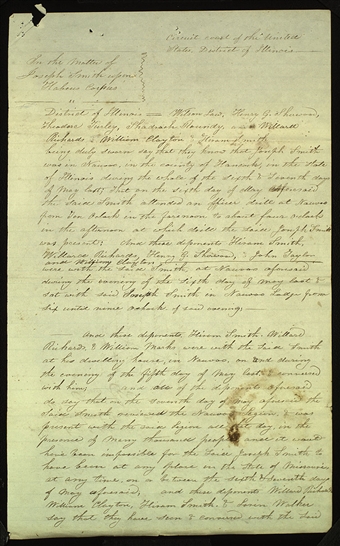 Circuit court of the United
States District of Illinois
In the Matter of
Joseph Smith upon
Habeas Corpus
District of Illinois — Wilson Law, Henry G. Sherwood,
Theodore Turley, Shadrach Roundy, and Willard
Richards, William Clayton & Hiram Smith
being duly sworn say that they know that Joseph Smith
was in Nauvoo, in the county of Hancock, in the State
of Illinois during the whole of the sixth & Seventh days
of May last; that on the sixth day of May aforesaid
the said Smith attended an officer drill at Nauvoo
from Ten Oclock in the forenoon to about four oclock
in the afternoon at which drill the said Joseph Smith
was present; And these deponents Hiram Smith,
Willard Richards, Henry G. Sherwood, John Taylor
and William Clayton
were with the said Smith at Nauvoo aforesaid
during the evening of the sixth day of May last &
sat with said Joseph Smith in Nauvoo Lodge from
six until nine oclock of said evening;
And these deponents, Hiram Smith, Willard
Richards, & William Marks were with the said Smith
at his dwelling house, in Nauvoo, on and during
the evening of the fifth day of May last & conversed
with him; and all of the deponents aforesaid
do say that on the seventh day of May aforesaid the
said Smith reviewed the Nauvoo Legion & was
present with the said legion all that day, in the
presence of many thousands people and it would
have been impossible for the said Joseph Smith to
have been at any place in the State of Missouri
at any time, on or between the sixth & seventh days
of May aforesaid, and these deponents Willard Richards
William Clayton, Hiram Smith, & Loren Walker
say that they have seen & conversed with the said